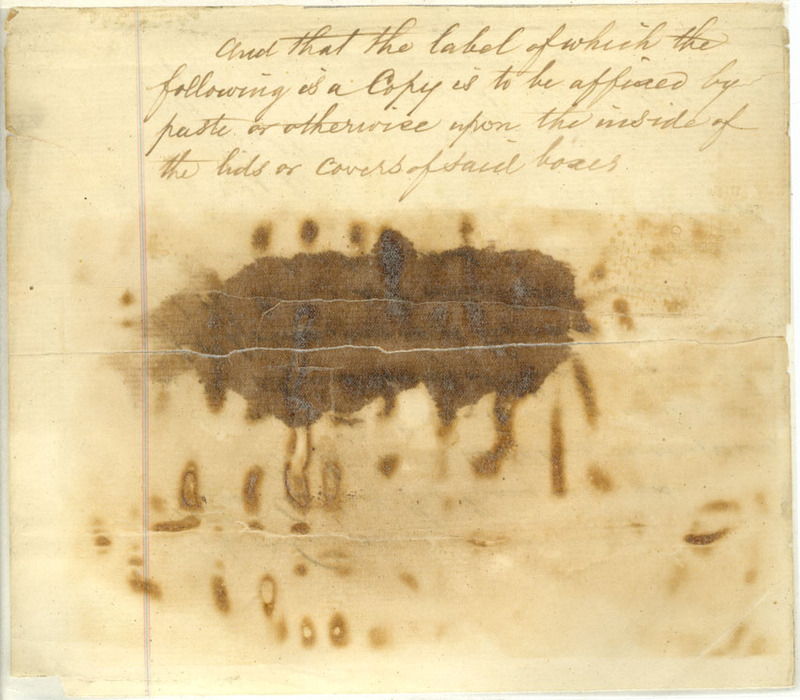 And that the label of which the
following is a Copy is to be affixed by
paste or otherwise upon the inside of
the lids or covers of said boxes